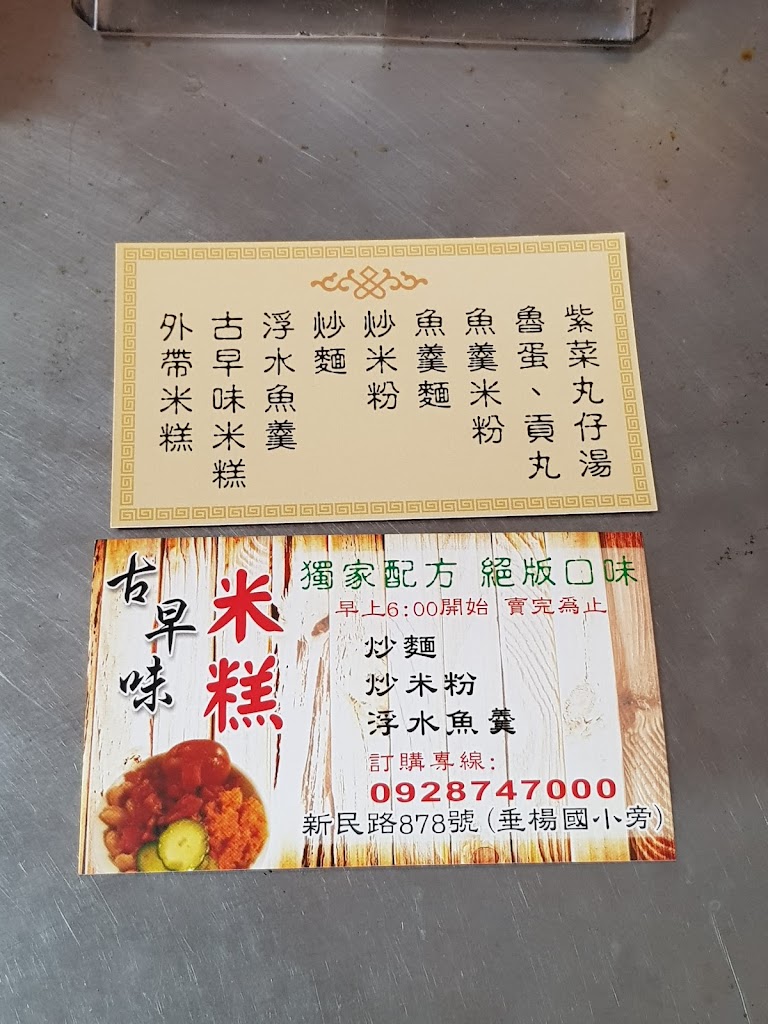 紫菜丸仔湯
魯蛋、貢丸
魚羹米粉
魚羹麵
炒米粉
炒麵
浮水魚羹
古早味米糕
外帶米糕
古早味
米糕
獨家配方 絕版口味
早上6:00開始 賣完為止
炒麵
炒米粉
浮水魚羹
訂購專線:
0928747000
新民路878號(垂楊國小旁)